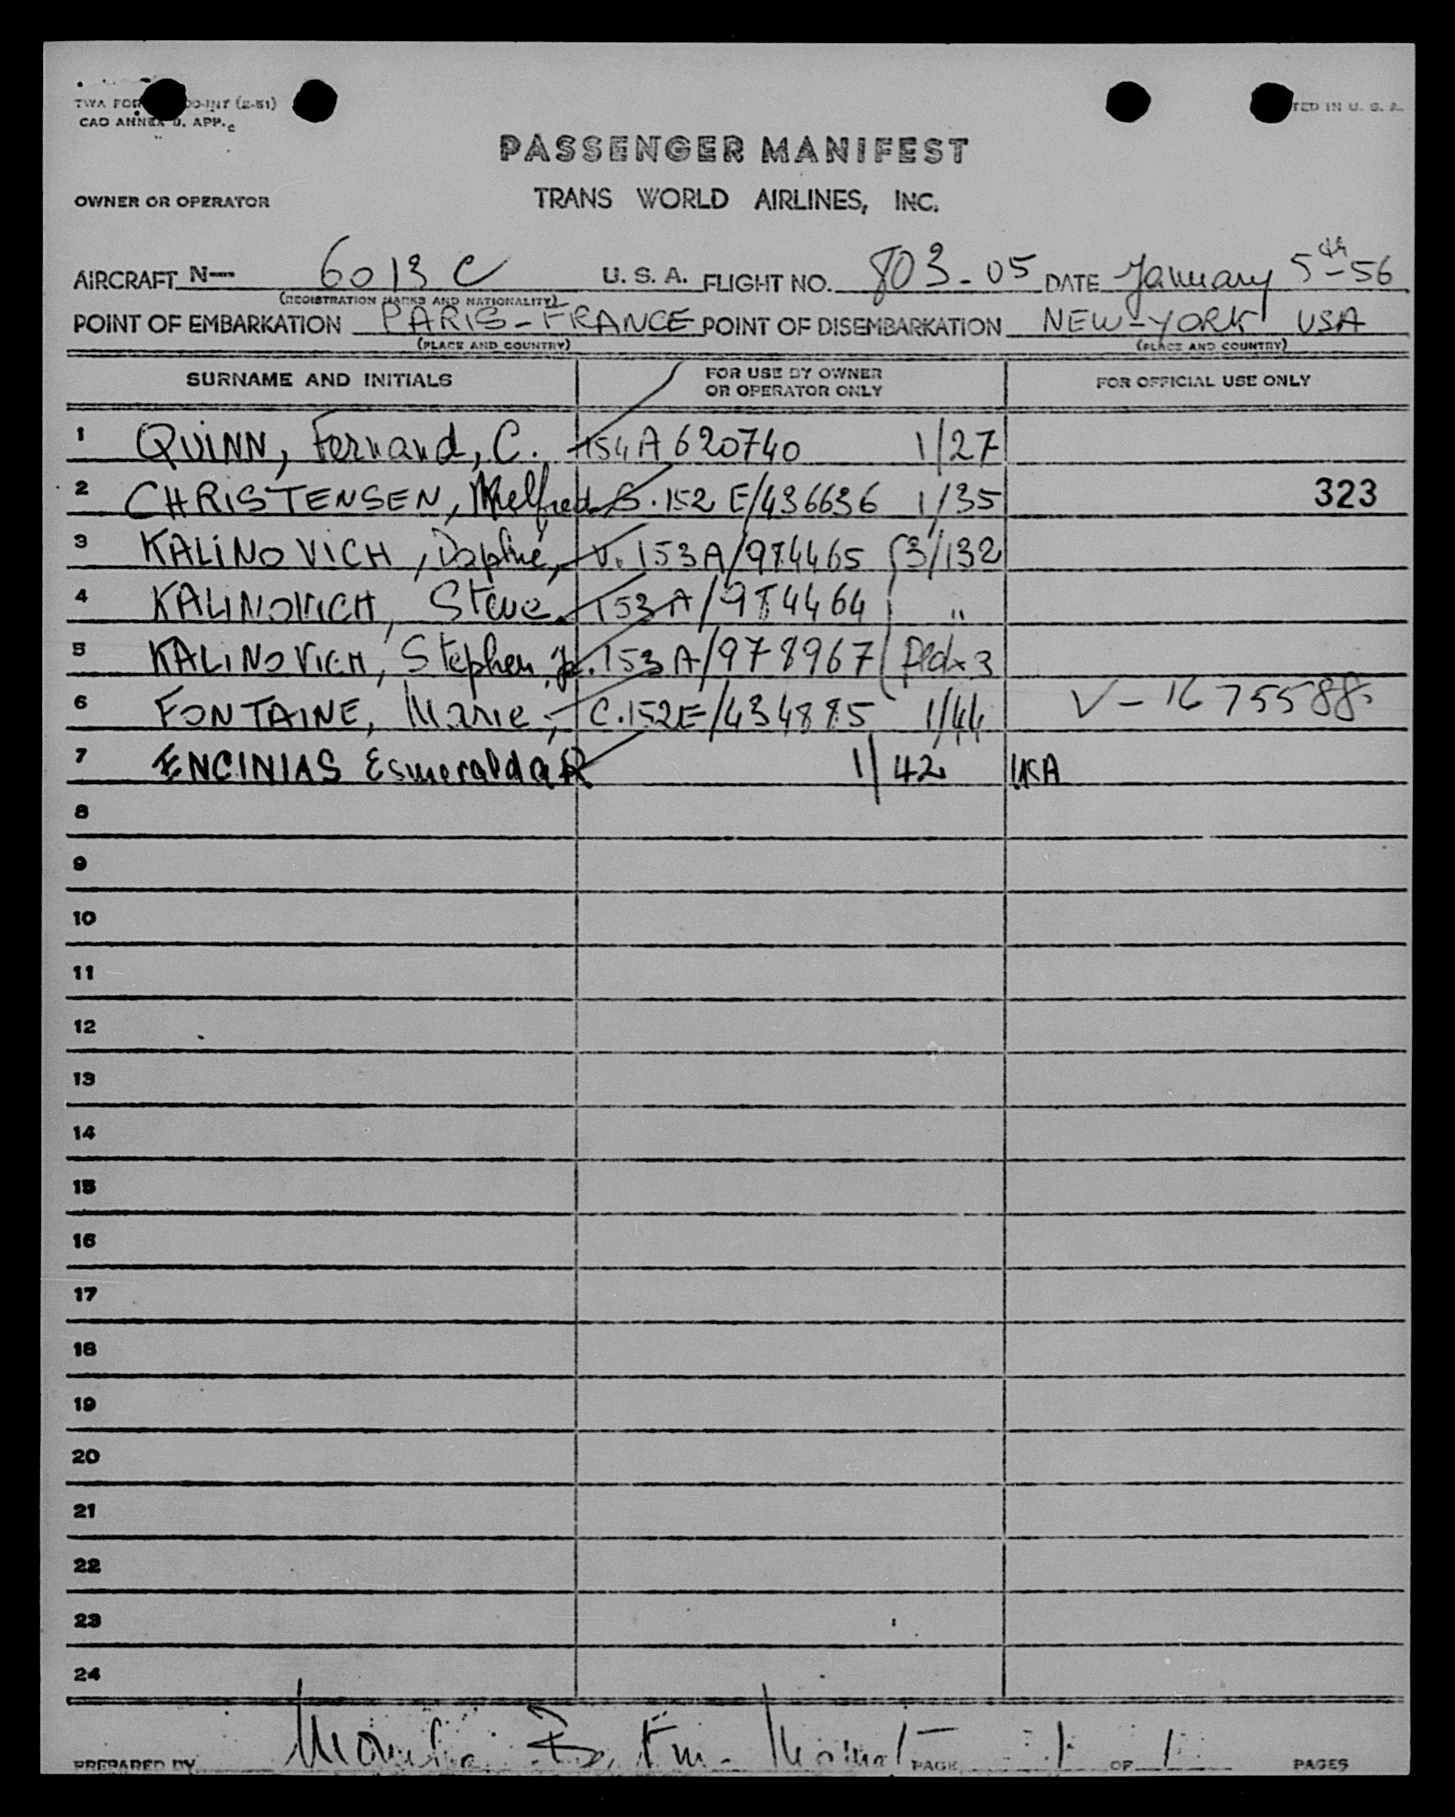 TWA FOR 00-INT (2-51)
CAO ANNEX 9, APP.
TED IN U. S. A.
PASSENGER MANIFEST
OWNER OR OPERATOR TRANS WORLD AIRLINES, INC.
AIRCRAFT N— 6013 C U. S. A. FLIGHT NO. 803-05 DATE January 5th-56
(REGISTRATION MARKS AND NATIONALITY)
POINT OF EMBARKATION PARIS - FRANCE POINT OF DISEMBARKATION NEW-YORK USA
(PLACE AND COUNTRY) (PLACE AND COUNTRY)
SURNAME AND INITIALS FOR USE BY OWNER OR OPERATOR ONLY FOR OFFICIAL USE ONLY
1 QUINN, Fernand, C. 154A 620740 1/27
2 CHRISTENSEN, S. 152 E/436636 1/35 323
3 KALINOVICH, Daphné, V. 153A/984465 3/132
4 KALINOVICH, Steve 153A/984464 "
5 KALINOVICH, Stephen, Jr. 153A/978967
6 FONTAINE, Marie, C. 152E/434885 1/44 V-1675588
7 ENCINIAS Esmeralda R 1/42 USA
8
9
10
11
12
13
14
15
16
17
18
19
20
21
22
23
24
PREPARED BY PAGE 1 OF 1 PAGES